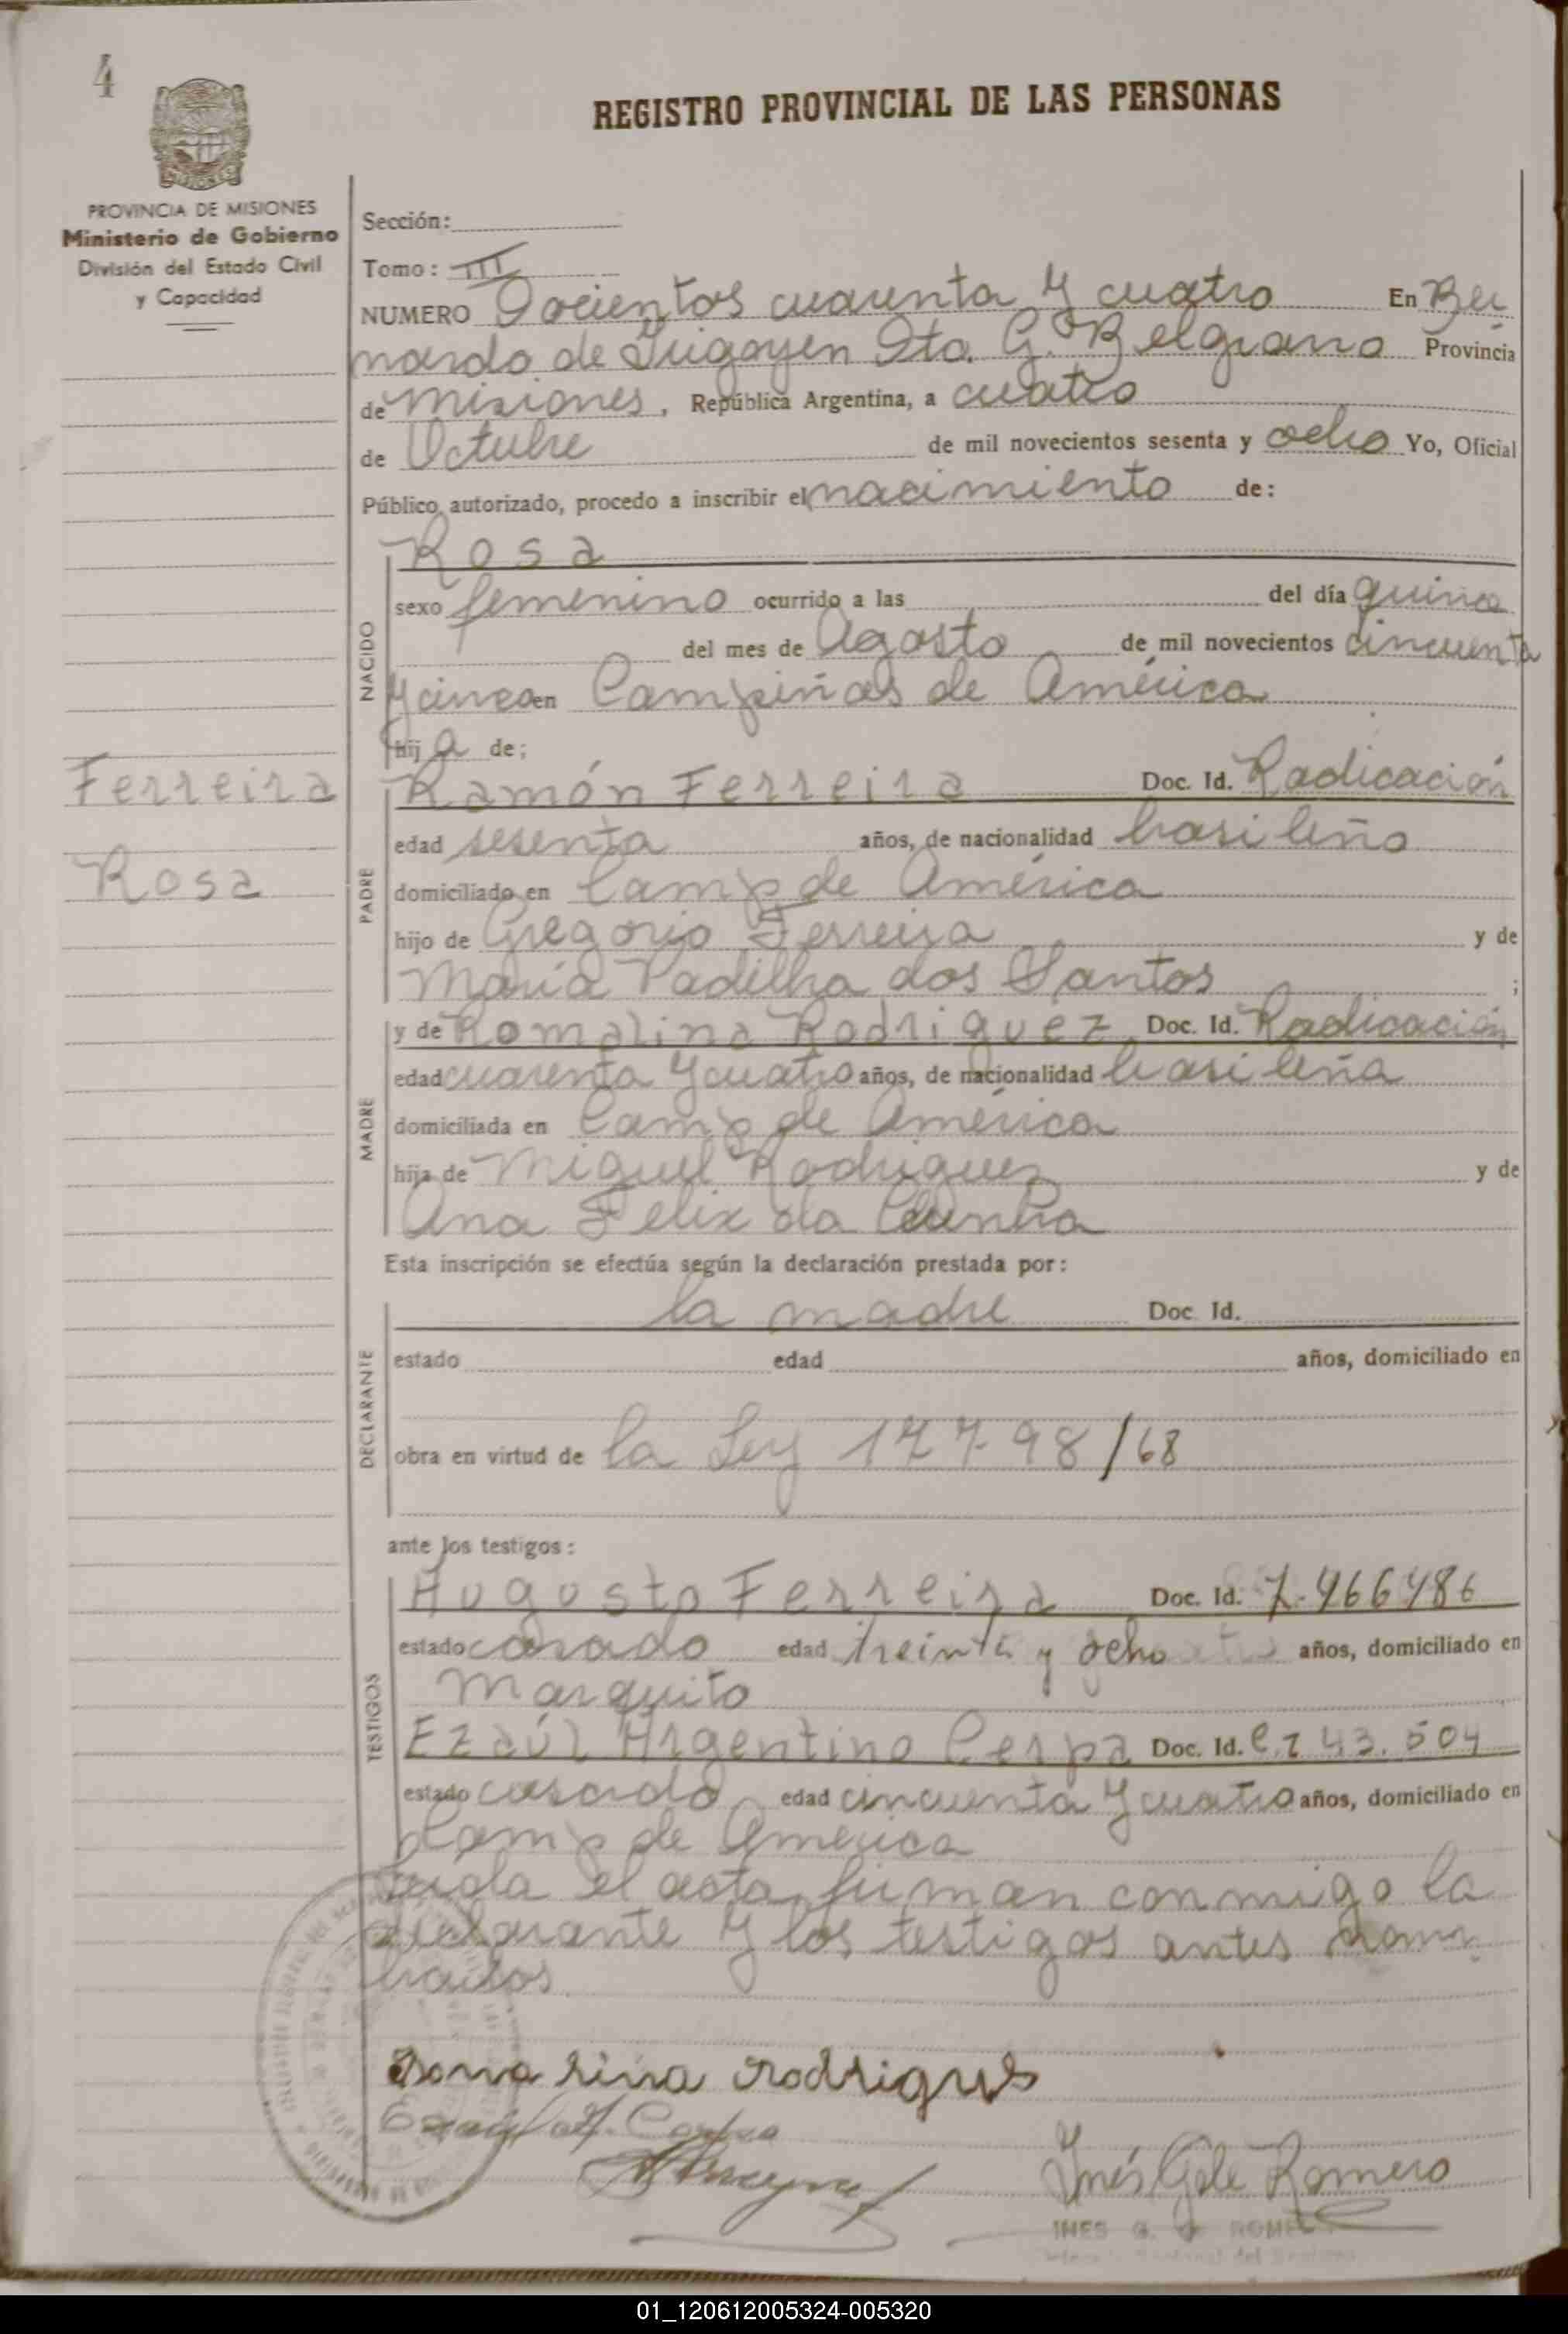 4
REGISTRO PROVINCIAL DE LAS PERSONAS
PROVINCIA DE MISIONES
Ministerio de Gobierno
División del Estado Civil
y Capacidad
Sección:
Tomo: III
NUMERO Docientos cuarenta y cuatro En Ber
nardo de Irigoyen Dto. G. Belgrano Provincia
de Misiones, República Argentina, a cuatro
de Octubre de mil novecientos sesenta y ocho Yo, Oficial
Público autorizado, procedo a inscribir el nacimiento de:
Rosa
NACIDO
sexo femenino ocurrido a las del día quince
del mes de Agosto de mil novecientos cincuenta
y cinco en Campiñas de América
hija de;
Ferreira
Rosa
PADRE
Ramón Ferreira Doc. Id. Radicación
edad sesenta años, de nacionalidad brasileño
domiciliado en Camp de América
hijo de Gregorio Ferreira y de
María Padilha dos Santos ;
MADRE
y de Romalina Rodriguez Doc. Id. Radicación
edad cuarenta y cuatro años, de nacionalidad brasileña
domiciliada en Camp de América
hija de Miguel Rodriguez y de
Ana Felix da Cunha
Esta inscripción se efectúa según la declaración prestada por:
DECLARANTE
la madre Doc. Id.
estado edad años, domiciliado en
obra en virtud de la Ley 17798/68
ante los testigos:
TESTIGOS
Augosto Ferreira Doc. Id. 7.466486
estado casado edad treinta y ocho años, domiciliado en
Marquito
Ezaúl Argentino Cerpa Doc. Id. C.I 43.504
estado casado edad cincuenta y cuatro años, domiciliado en
Camp de América
Leida el acta, firman conmigo la
declarante y los testigos antes nom
brados.
rodrigues
Ezaúl A. Cerpa
Inés Gde Romero
INES G. ROMERO
01_120612005324-005320